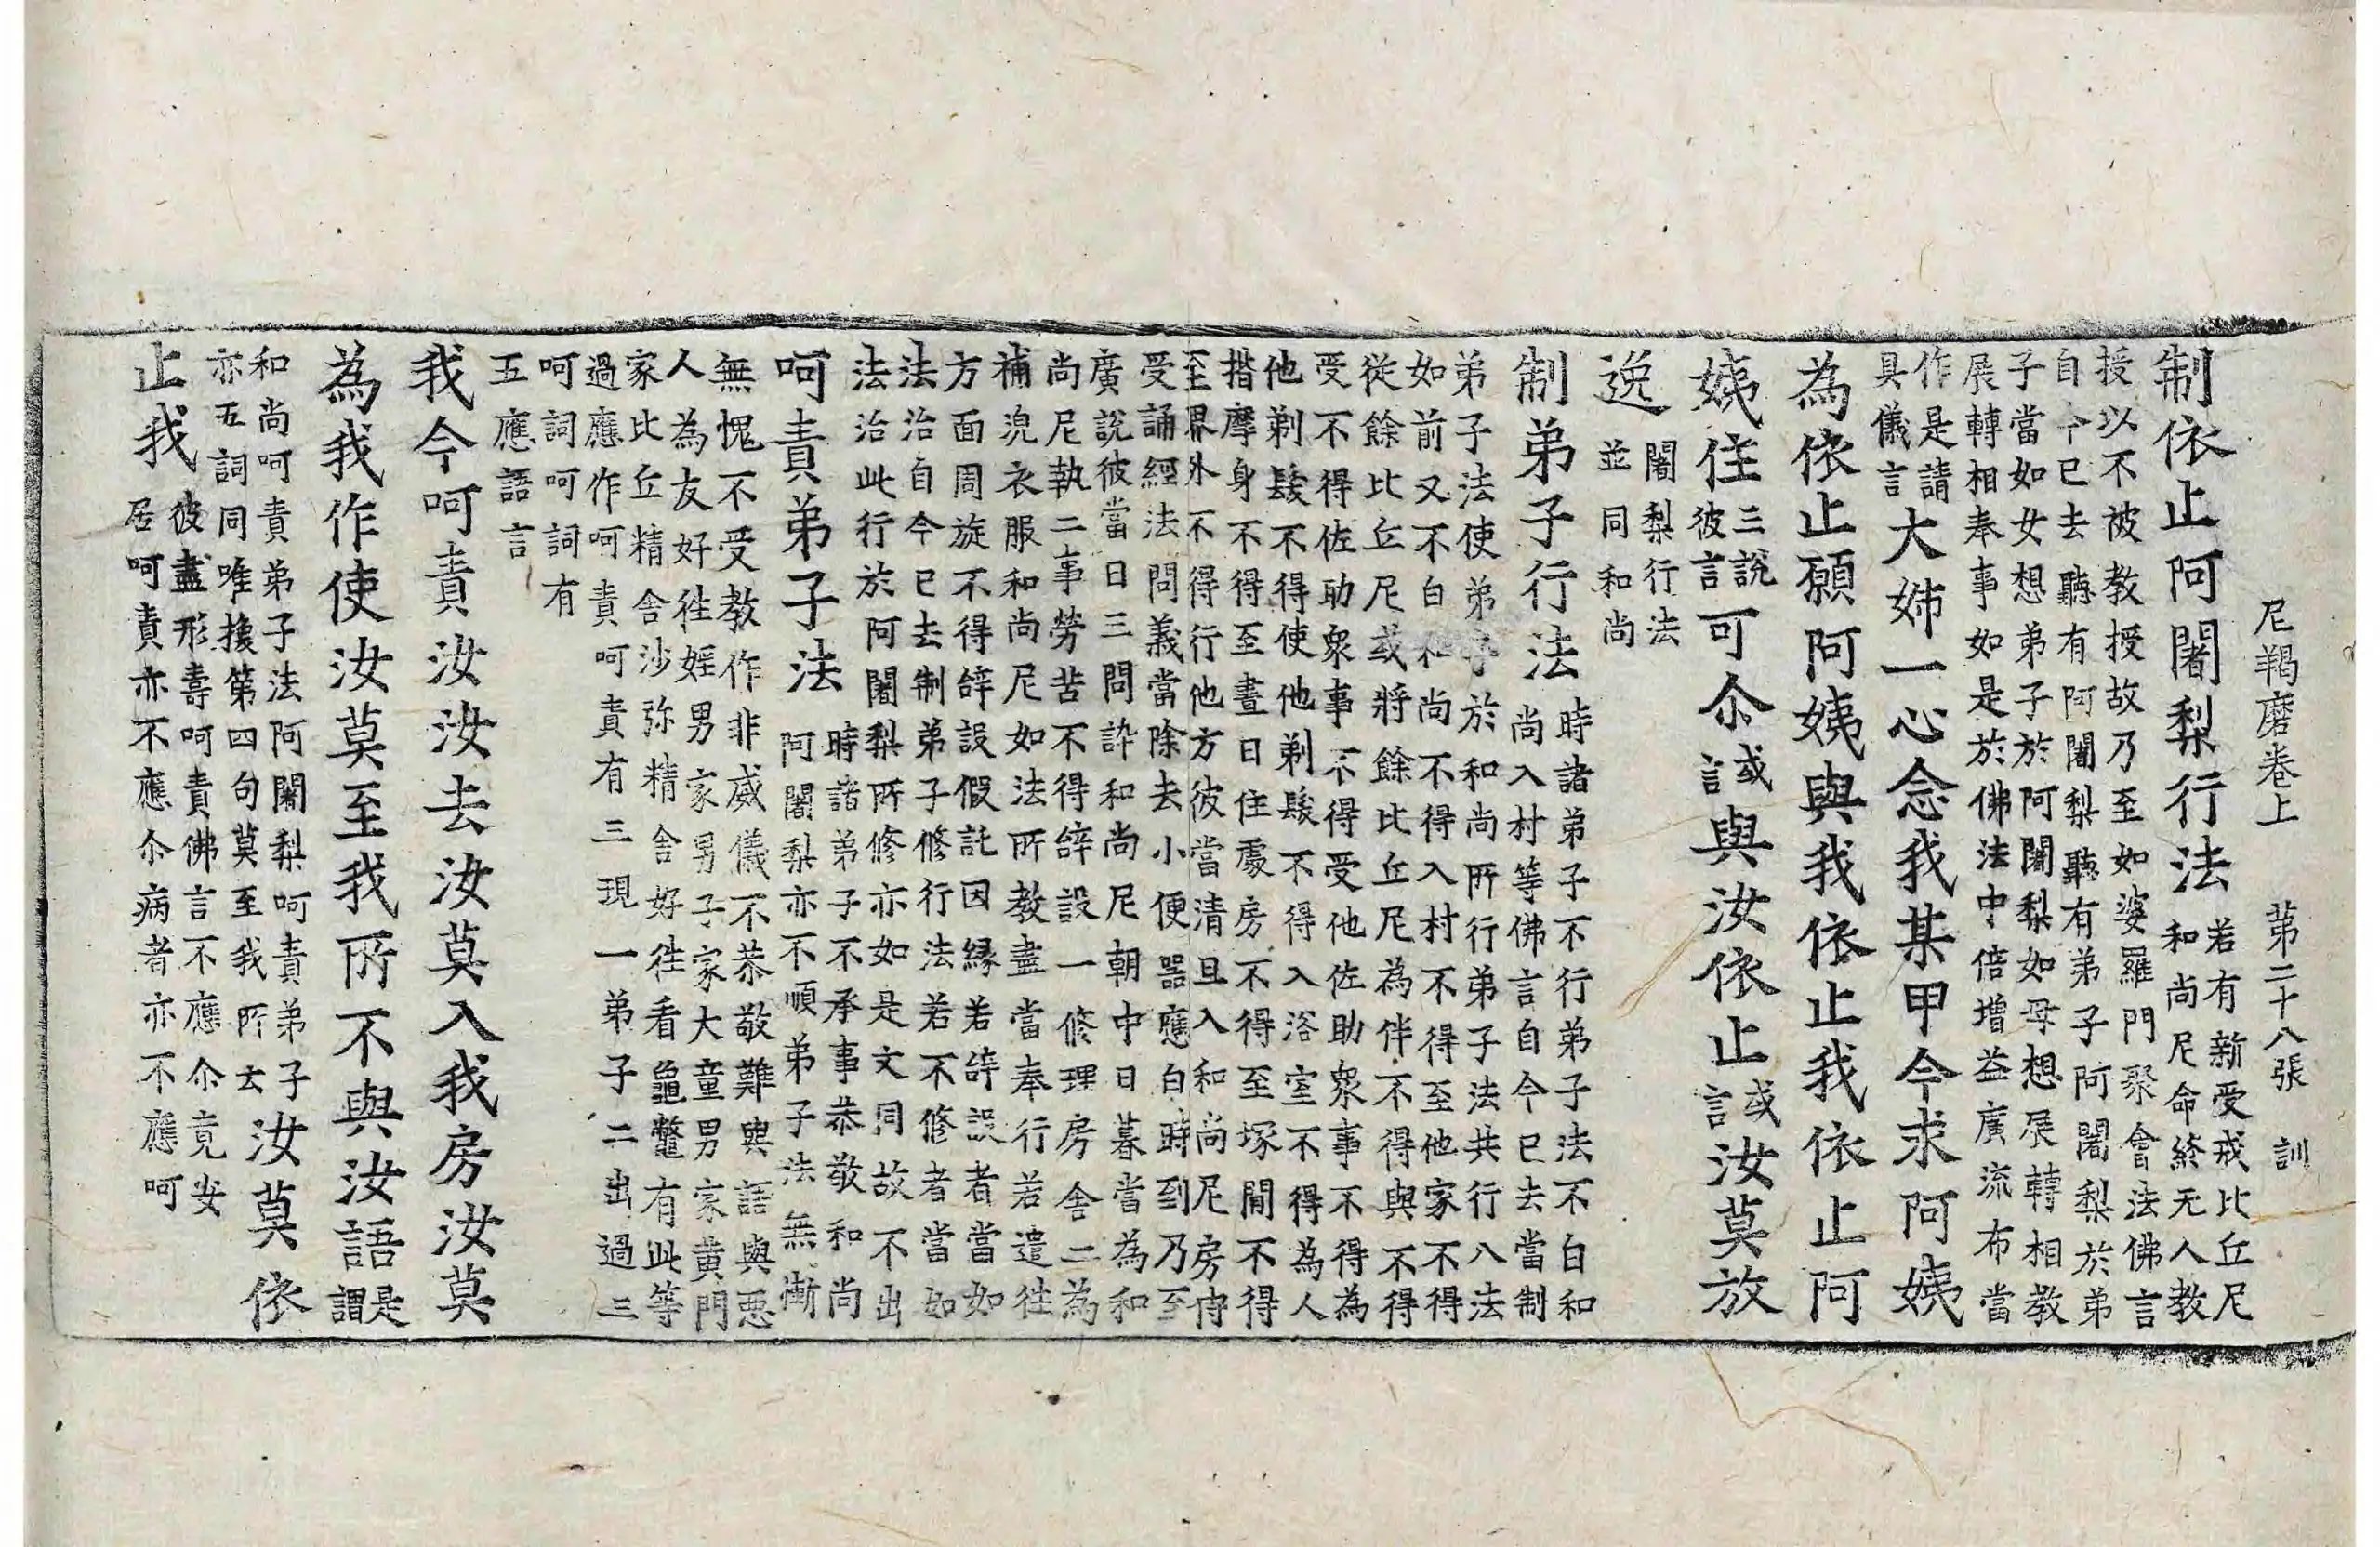 尼羯磨卷上　第二十八張　訓
制依止阿闍梨行法
若有新受戒比丘尼
和尚尼命終无人教
授以不被教授故乃至如婆羅門聚會法佛言
自今已去聽有阿闍梨聽有弟子阿闍梨於弟
子當如女想弟子於阿闍梨如母想展轉相教
展轉相奉事如是於佛法中倍增益廣流布當
作是請
具儀言
大姊一心念我某甲今求阿姨
為依止願阿姨與我依止我依止阿
姨住
三說
彼言
可尒
或
言
與汝依止
或
言
汝莫放
逸
闍梨行法
並同和尚
制弟子行法
時諸弟子不行弟子法不白和
尚入村等佛言自今已去當制
弟子法使弟子於和尚所行弟子法共行八法
如前又不白和尚不得入村不得至他家不得
從餘比丘尼或將餘比丘尼為伴不得與不得
受不得佐助眾事不得受他佐助眾事不得為
他剃髮不得使他剃髮不得入浴室不得為人
揩摩身不得至晝日住處房不得至塚間不得
至界外不得行他方彼當清旦入和尚尼房侍
受誦經法問義當除去小便器應白時到乃至
廣說彼當日三問訊和尚尼朝中日暮當為和
尚尼執二事勞苦不得辝設一修理房舍二為
補浣衣服和尚尼如法所教盡當奉行若遣往
方面周旋不得辝設假託因緣若辝設者當如
法治自今已去制弟子修行法若不修者當如
法治此行於阿闍梨所修亦如是文同故不出
呵責弟子法
時諸弟子不承事恭敬和尚
阿闍梨亦不順弟子法無慚
無愧不受教作非威儀不恭敬難與語與惡
人為友好往婬男家男子家大童男家黃門
家比丘精舍沙弥精舍好往看龜鼈有此等
過應作呵責呵責有三現一弟子二出過三
呵詞呵詞有
五應語言
我今呵責汝汝去汝莫入我房汝莫
為我作使汝莫至我所不與汝語
是
謂
和尚呵責弟子法阿闍梨呵責弟子
亦五詞同唯換第四句莫至我所云
汝莫依
止我
彼盡形壽呵責佛言不應尒竟安
居呵責亦不應尒病者亦不應呵